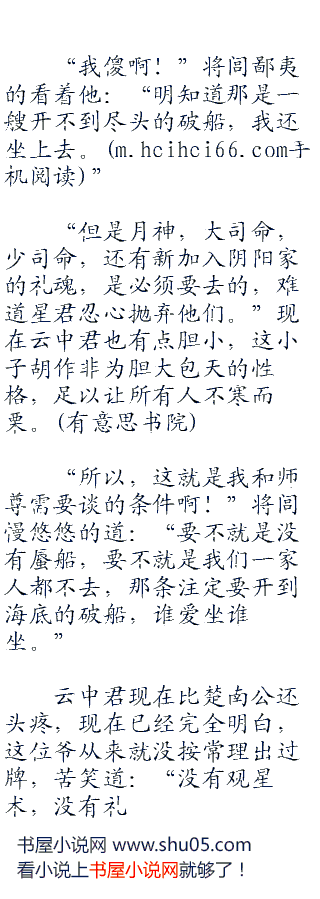 “我傻啊！”将闾鄙夷
的看着他：“明知道那是一
艘开不到尽头的破船，我还
坐上去。(m.hcihci66.com手
机阅读)”
“但是月神，大司命，
少司命，还有新加入阴阳家
的礼魂，是必须要去的，难
道星君忍心抛弃他们。”现
在云中君也有点胆小，这小
子胡作非为胆大包天的性
格，足以让所有人不寒而
栗。(有意思书院)
“所以，这就是我和师
尊需要谈的条件啊！”将闾
慢悠悠的道：“要不就是没
有蜃船，要不就是我们一家
人都不去，那条注定要开到
海底的破船，谁爱坐谁
坐。”
云中君现在比楚南公还
头疼，现在已经完全明白，
这位爷从来就没按常理出过
牌，苦笑道：“没有观星
术，没有礼
书屋小说网 www.shu05.com
看小说上书屋小说网就够了！